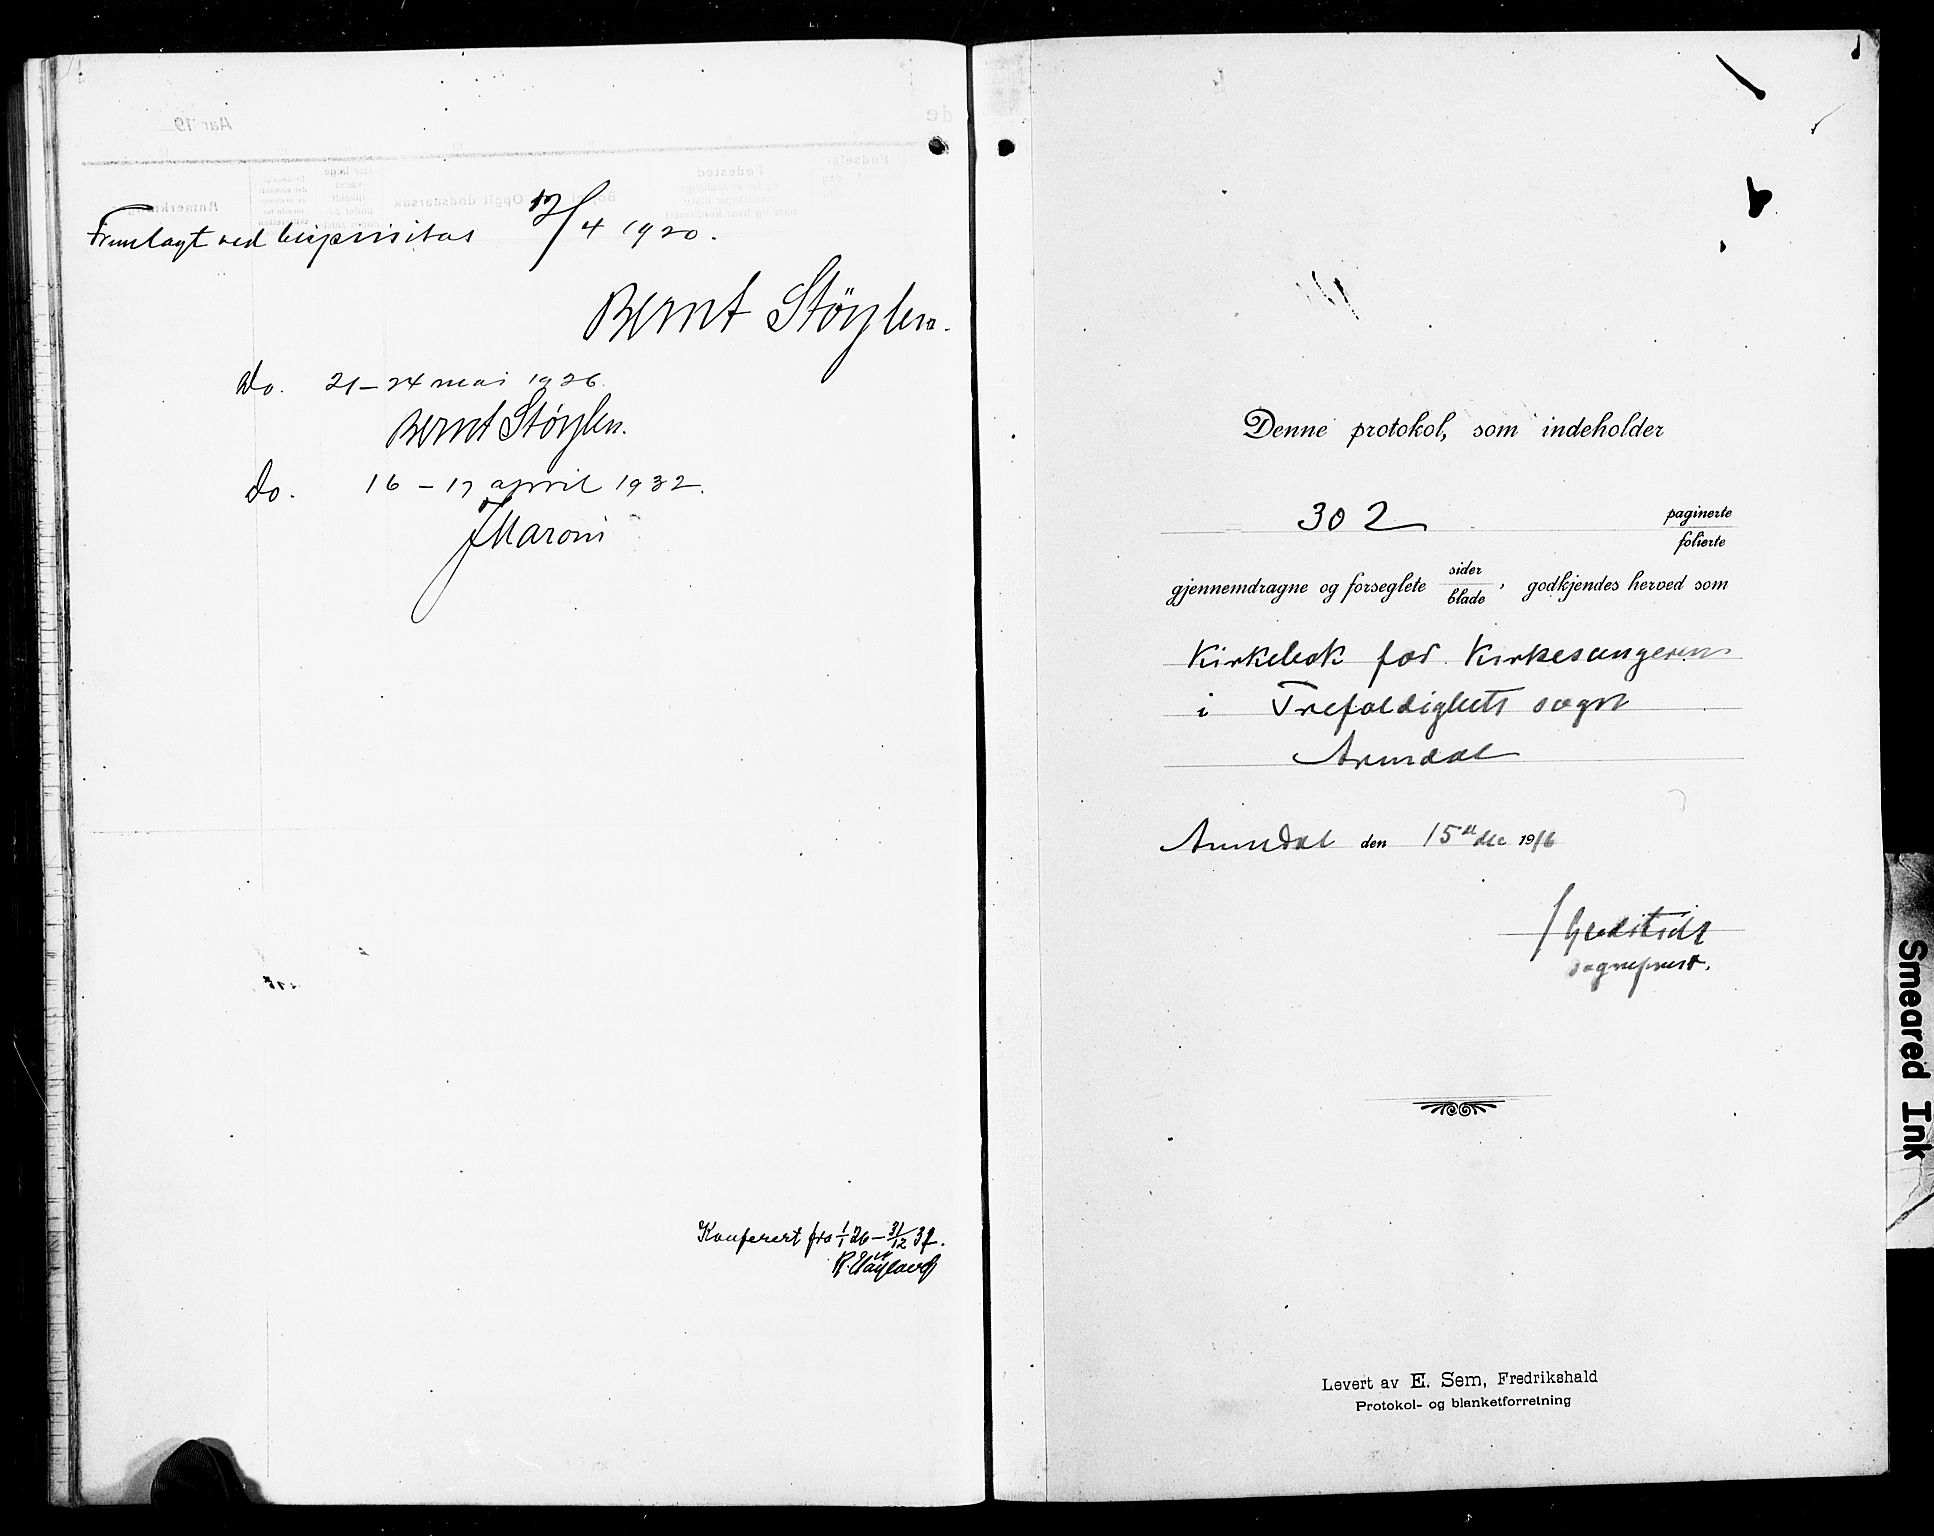 Fremlagt ved bispevisitas 17/4 1920.
Bernt Støylen.
Do. 21–24 mai 1926.
Bernt Støylen.
Do. 16–17 april 1932.
J Maroni
Konferert fra 1/1 26 – 31/12 37.
Denne protokol, som indeholder
302
paginerte
folierte
gjennemdragne og forseglete sider blade, godkjendes herved som
Kirkebok for Kirkesangeren
i Trefoldighets sogn
Arendal
Arendal den 15de dec 1916
sogneprest.
Levert av E. Sem, Fredrikshald
Protokol- og blanketforretning
Smeared Ink